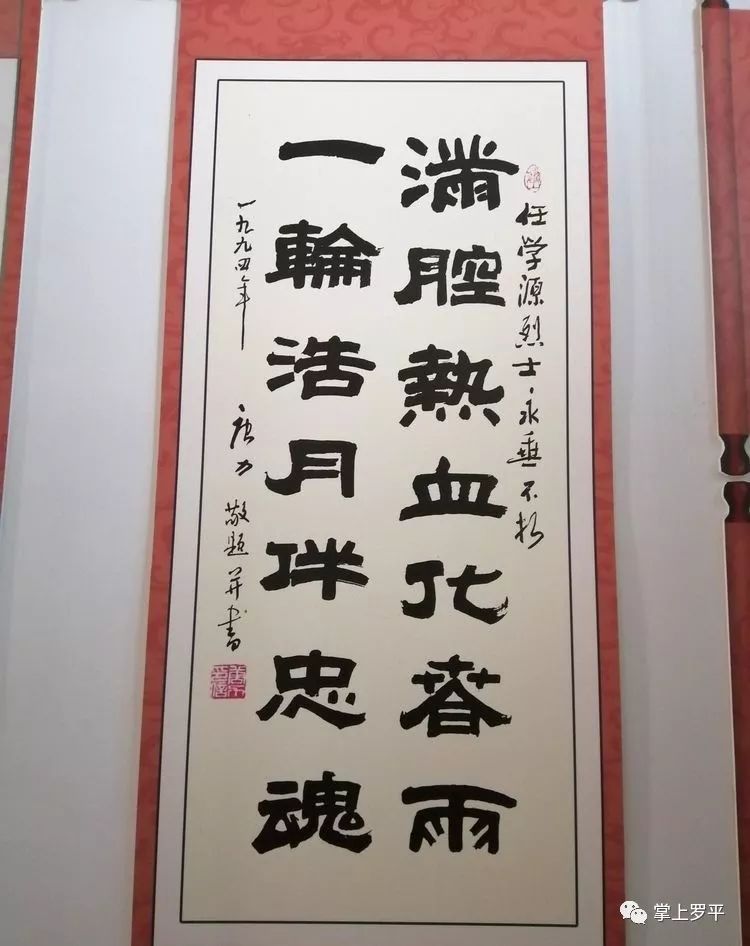 任学源烈士·永垂不朽
滿腔熱血化春雨
一輪浩月伴忠魂
一九九四年 唐力 敬题并書
掌上罗平